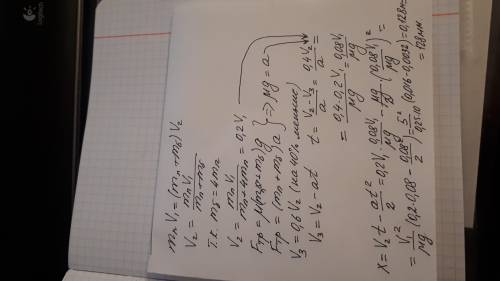 Logitech
mпV₁=(mп+mδ)V₂
V₂=mпV₁/(mп+mδ)
т.к. mδ=4mп
V₂=mпV₁/(mп+4mп)=0,2V₁
Fтр=μ(mп+mδ)g } ⇒ μg=a
Fтр=(mп+mδ)a
V₃=0,6V₂ (на 40% меньше)
V₃=V₂-at t=(V₂-V₃)/a=0,4V₂/a=
=0,4·0,2V₁/μg=0,08V₁/μg
X=V₂t-at²/2=0,2V₁·0,08V₁/μg-μg/2·(0,08V₁/μg)²=
=V₁²/μg(0,2·0,08-0,08²/2)=5²/0,25·10(0,016-0,0032)=0,128м=
=128мм.